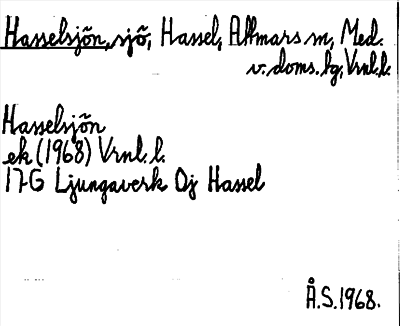 Hasselsjön, sjö, Hassel, Attmars sn, Med.
v. doms. hg, Vrnl. l.
Hasselsjön
ek (1968) Vrnl. l.
17G Ljungaverk Oj Hassel
Å.S. 1968.